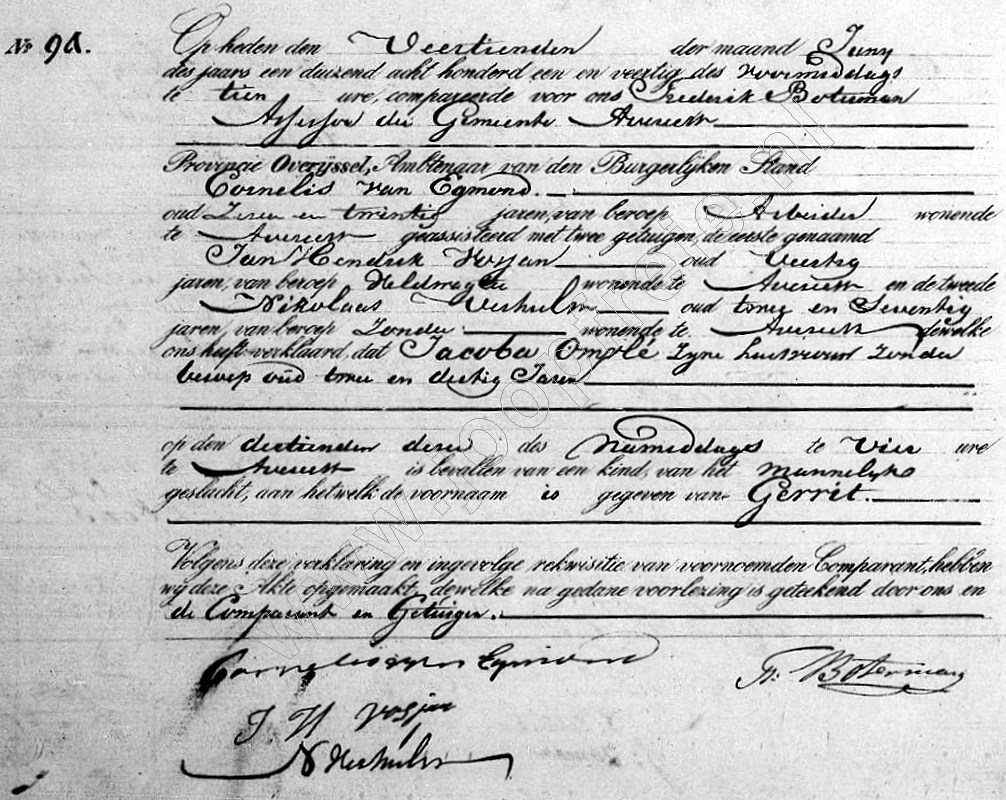 No 94.
Op heden den Veertienden der maand Juny
des jaars een duizend acht honderd een en veertig des voormiddags
te tien ure, compareerde voor ons Frederik Boterman
Assessor der Gemeente Avereest
Provincie Overijssel, Ambtenaar van den Burgerlijken Stand
Cornelis van Egmond.
oud Zeven en twintig jaren, van beroep Arbeider wonende
te Avereest geassisteerd met twee getuigen, de eerste genaamd
Jan Hendrik Vosjan oud Veertig
jaren, van beroep Veldwagter wonende te Avereest en de tweede
Nikolaas Verhulst oud twee en Seventig
jaren, van beroep Zonder wonende te Avereest dewelke
ons heeft verklaard, dat Jacoba Omplé Zyne huisvrouw Zonder
beroep oud twee en dertig Jaren
op den dertienden dezer des Namiddags te Vier ure
te Avereest is bevallen van een kind, van het Mannelyke
geslacht, aan hetwelk de voornaam is gegeven van Gerrit.
Volgens deze verklaring en ingevolge rekwisitie van voornoemden Comparant, hebben
wij deze Akte opgemaakt, dewelke na gedane voorlezing is geteekend door ons en
de Comparant en Getuigen.
Cornelis van Egmond
F: Boterman
J H Vosjan
N Verhulst
www.pondes.nl